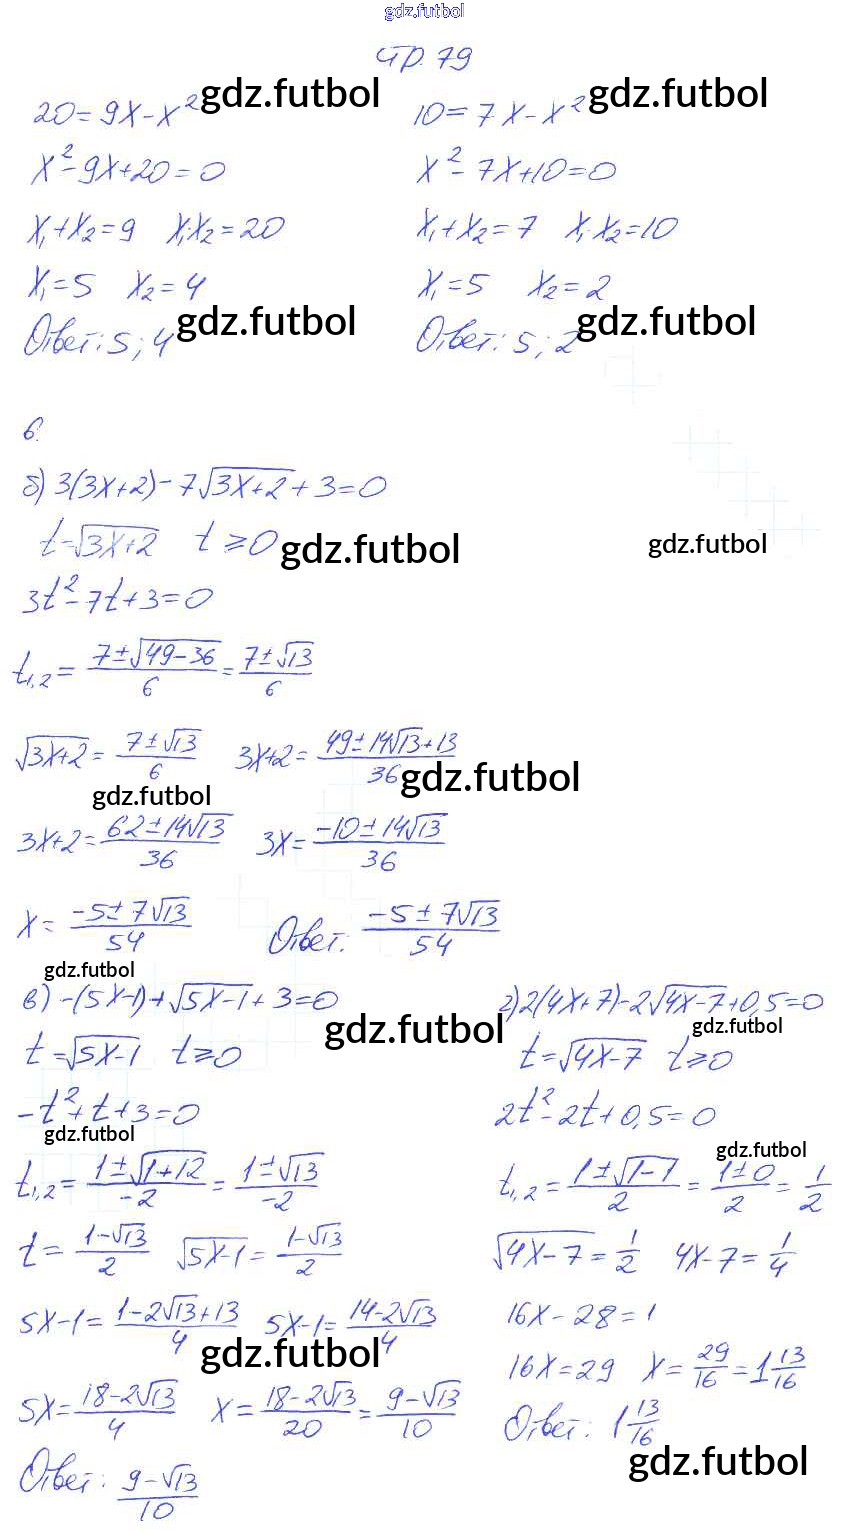 gdz.futbol
стр. 79
20 = 9x - x² gdz.futbol
x² - 9x + 20 = 0
x₁ + x₂ = 9 x₁x₂ = 20
x₁ = 5 x₂ = 4
Ответ: 5; 4 gdz.futbol
10 = 7x - x² gdz.futbol
x² - 7x + 10 = 0
x₁ + x₂ = 7 x₁x₂ = 10
x₁ = 5 x₂ = 2
Ответ: 5; 2 gdz.futbol
6.
б) 3(3x+2) - 7√(3x+2) + 3 = 0
t = √(3x+2) t ≥ 0 gdz.futbol gdz.futbol
3t² - 7t + 3 = 0
t₁,₂ = (7±√(49-36))/6 = (7±√13)/6
√(3x+2) = (7±√13)/6 3x+2 = (49±14√13+13)/36 gdz.futbol
gdz.futbol
3x+2 = (62±14√13)/36 3x = (-10±14√13)/36
x = (-5±7√13)/54 Ответ: (-5±7√13)/54
gdz.futbol
в) -(5x-1) + √(5x-1) + 3 = 0 gdz.futbol
t = √(5x-1) t ≥ 0
-t² + t + 3 = 0
gdz.futbol
t₁,₂ = (1±√(1+12))/-2 = (1±√13)/-2
t = (1-√13)/2 √(5x-1) = (1-√13)/2
5x-1 = (1-2√13+13)/4 5x-1 = (14-2√13)/4
gdz.futbol
5x = (18-2√13)/4 x = (18-2√13)/20 = (9-√13)/10
Ответ: (9-√13)/10
г) 2(4x+7) - 2√(4x-7) + 0,5 = 0
gdz.futbol
t = √(4x-7) t ≥ 0
2t² - 2t + 0,5 = 0
gdz.futbol
t₁,₂ = (1±√(1-1))/2 = (1±0)/2 = 1/2
√(4x-7) = 1/2 4x-7 = 1/4
16x - 28 = 1
16x = 29 x = 29/16 = 1 13/16
Ответ: 1 13/16
gdz.futbol